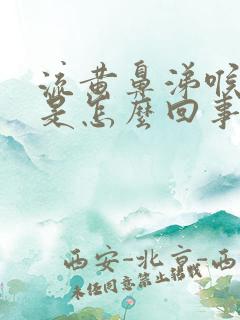 流黄鼻涕喉
是怎么回事
西安-北京-西
未经同意禁止转载